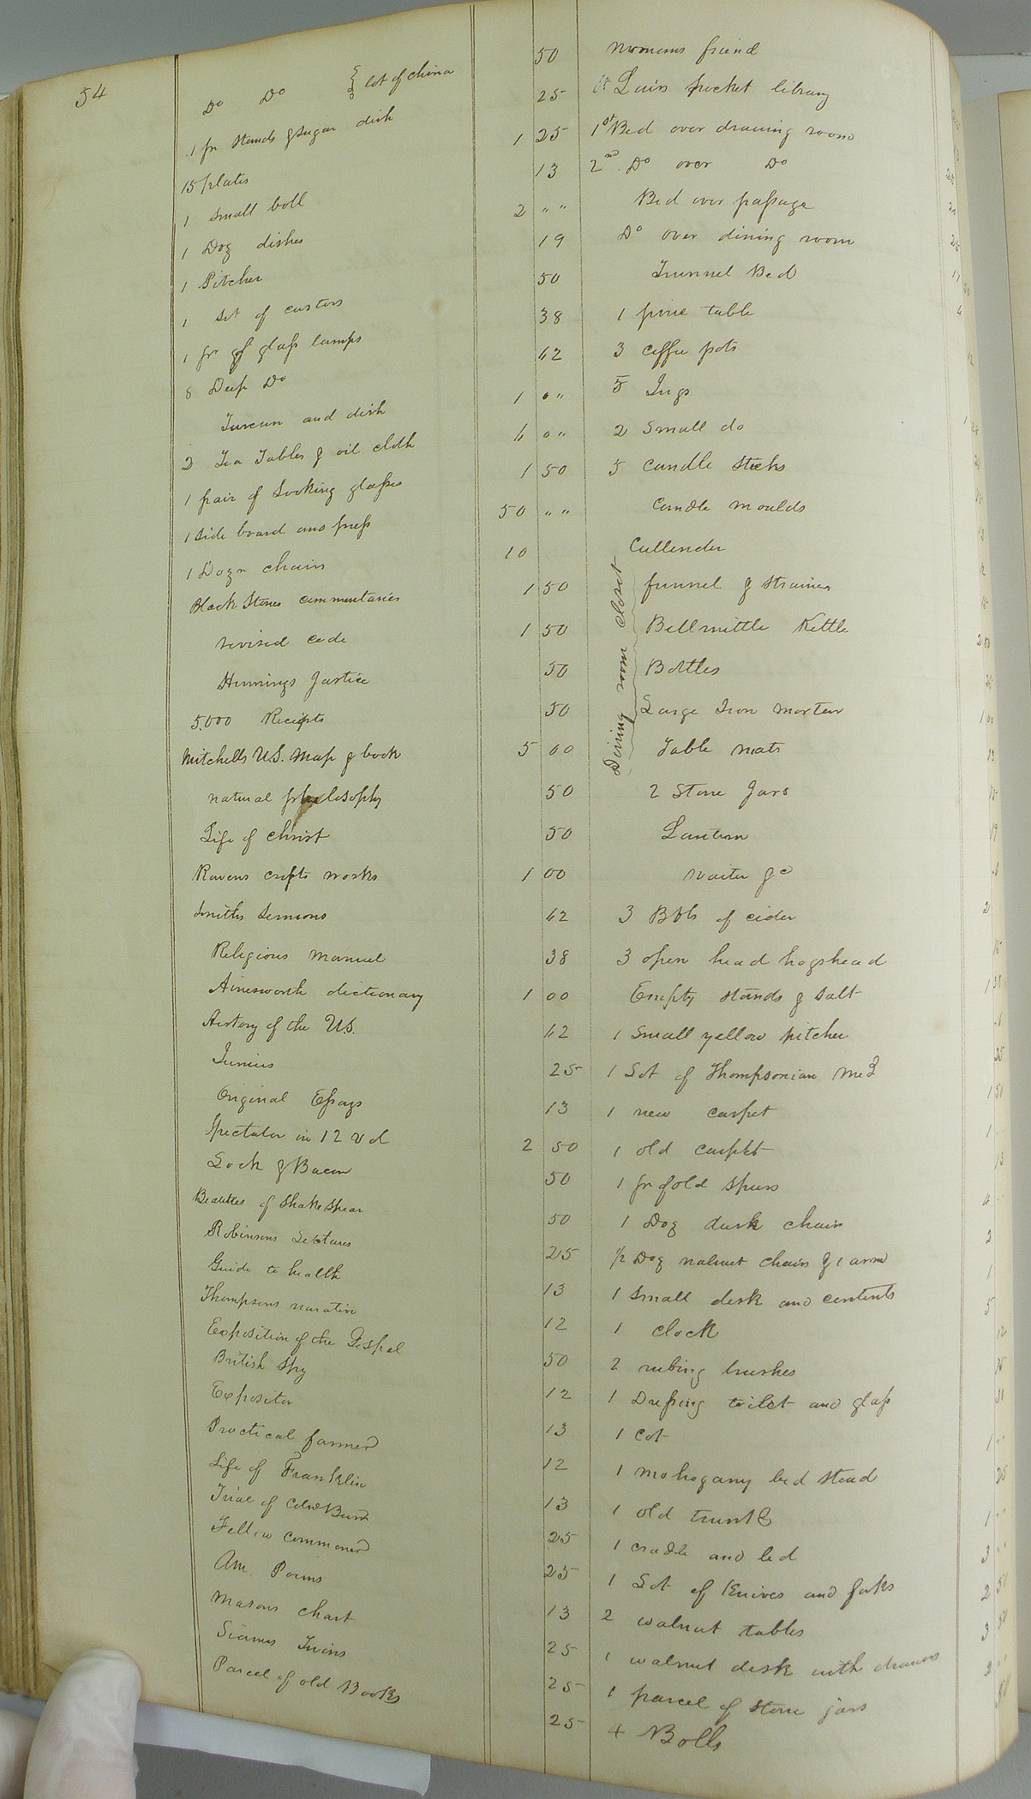 54
Do Do } lot of china
1 pr Stands & Sugar dish
15 plates
1 Small boll
1 Doz dishes
1 Pitcher
1 Set of castors
1 pr of glass lamps
8 Deep Do
Tureen and dish
2 Tea Tables & oil cloth
1 pair of Looking glasses
1 Side board and press
1 Dozn chairs
Black Stones commentaries
revised code
Hennings Justice
5.000 Receipts
Mitchells U.S. Map & book
natural philosophy
Life of Christ
Ravens crofts works
Smiths Sermons
Religious manuel
Ainesworth dictionary
History of the U.S.
Junius
Original Essays
Spectator in 12 vol
Lock & Bacon
Beauties of Shakespear
Robinsons Lectures
Guide to health
Thompsons narative
Exposition of the Gospel
British Spy
Expositor
Practical farmer
Life of Franklin
Trial of Colo Burr
Fellow commoner
Am. Poems
Masons chart
Siamese Twins
Parcel of old Books
50
25
1 25
13
2 " "
19
50
38
62
1 " "
6 " "
1 50
50 " "
10
1 50
1 50
50
50
5 00
50
50
1 00
62
38
1 00
62
25
13
2 50
50
50
25
13
12
50
12
13
12
13
25
25
13
25
25
25
Womens friend
Pocket library
1st Bed over drawing room
2nd Do over Do
Bed over passage
Do over dining room
Trunnel Bed
1 pine table
3 coffee pots
5 Jugs
2 Small do
5 candle sticks
candle moulds
Cullender
Dining room closet
funnel & strainer
Bellmittle Kettle
Bottles
Large Iron Mortar
Table mats
2 Stone Jars
Lantern
waiter &c
3 Bbls of cider
3 open head hogshead
Empty stands & salt
1 Small yellow pitcher
1 Set of Thompsonian Med
1 new carpet
1 old carpet
1 pr of old spurs
1 Doz dark chairs
1/2 Doz walnut chairs & 1 arm
1 Small desk and contents
1 clock
2 rubing brushes
1 Dressing toilet and glass
1 Cot
1 mahogany bed stead
1 old trunk
1 cradle and bed
1 Set of Knives and forks
2 walnut tables
1 walnut desk with drawers
1 parcel of stone jars
4 Bolls